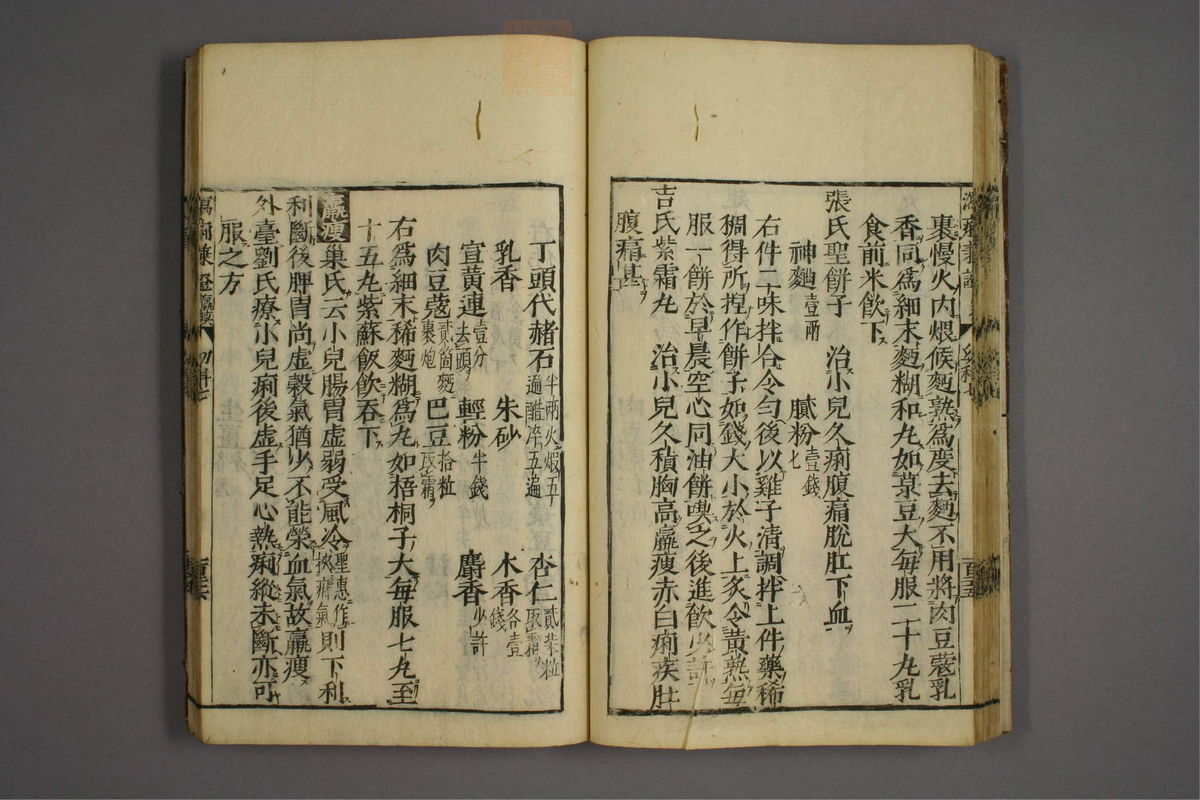 裹慢火内煨候麪熟爲度去麪不用將肉豆蔻乳
香同爲細末麪糊和丸如菉豆大每服二十丸乳
食前米飲下
張氏聖餅子 治小兒久痢腹痛脫肛下血
神麯壹兩 膩粉壹錢七
右件二味拌合令匀後以雞子清調拌上件藥稀
稠得所捏作餅子如錢大小於火上炙令黄熟每
服一餅於早晨空心同油餅喫之後進飲少許
吉氏紫霜丸 治小兒久積胸高羸瘦赤白痢疾肚
腹痛甚
丁頭代赭石半兩火煆五遍醋淬五遍 杏仁貳拾粒取霜
乳香 朱砂 木香各壹錢
宣黄連壹分去頭 輕粉半錢 麝香少許
肉豆蔻貳箇麪裹炮 巴豆拾粒取霜
右爲細末稀麪糊爲丸如梧桐子大每服七丸至
十五丸紫蘇飯飲吞下
羸瘦 巢氏云小兒腸胃虚弱受風冷聖惠作挾疳氣則下利
利斷後脾胃尚虚穀氣猶少不能榮血氣故羸瘦
外臺劉氏療小兒痢後虚手足心熱痢縱未斷亦可
服之方